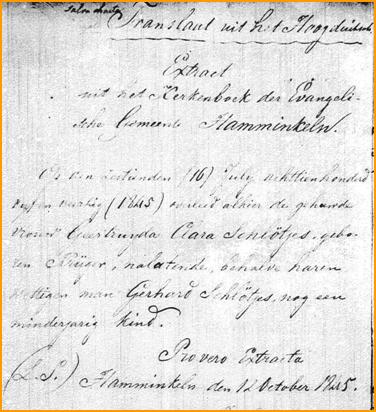 Salvo
Translaat uit het Hoogduitsch
Extract
uit het Kerkenboek der Evangeli-
sche Gemeente Hamminkeln.
Op den zestienden (16) July achttienhonderd
vyf en veertig (1845) overleed alhier de gehuwde
vrouw Geertruyda Clara Schlötjes, gebo-
ren Krüger, nalatende, behalve haren
wettigen man Gerhard Schlötjes, nog een
minderjarig kind.
Pro vero Extracta
(L.S.) Hamminkeln den 12 October 1845.